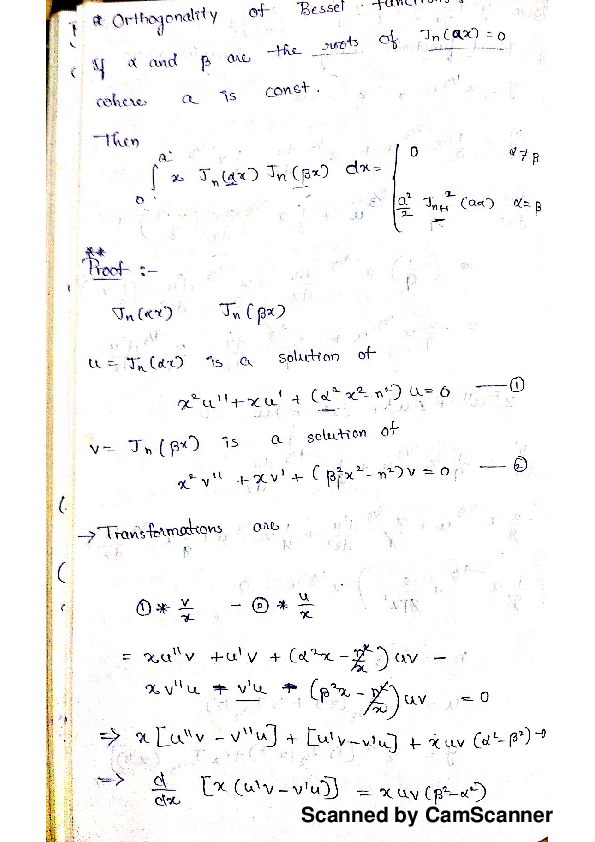 * Orthogonality of Bessel functions
If α and β are the roots of Jn(ax)=0
where a is const.
Then
∫₀ᵃ x Jn(αx) Jn(βx) dx = { 0 α≠β
a²/2 J²n+1 (aα) α=β
**
Proof :-
Jn(αx) Jn(βx)
u = Jn(αx) is a solution of
x²u'' + xu' + (α²x² - n²) u = 0 — ①
v = Jn(βx) is a solution of
x²v'' + xv' + (β²x² - n²) v = 0 — ②
→ Transformations are
① * v/x - ② * u/x
= xu''v + u'v + (α²x - n²/x) uv -
xv''u - v'u - (β²x - n²/x) uv = 0
⇒ x[u''v - v''u] + [u'v - v'u] + xuv(α² - β²) = 0
⇒ d/dx [x(u'v - v'u)] = xuv(β² - α²)
Scanned by CamScanner